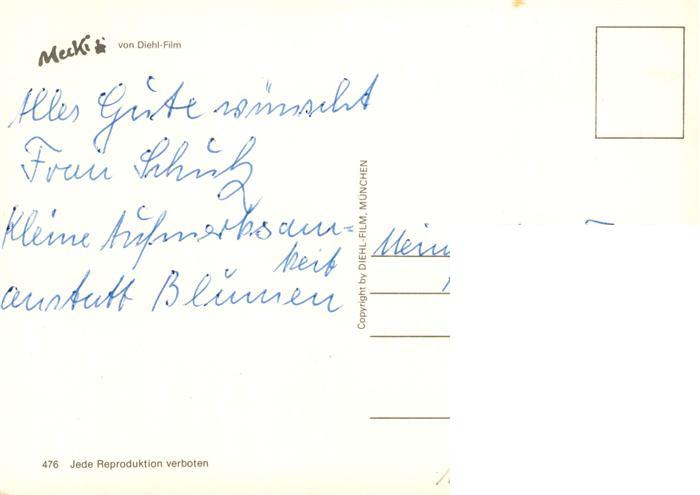 Mecki von Diehl-Film
Alles Gute wünscht
Frau Schulz
Kleine Aufmerksam-
keit
anstatt Blumen
Copyright by DIEHL-FILM, MÜNCHEN
476 Jede Reproduktion verboten